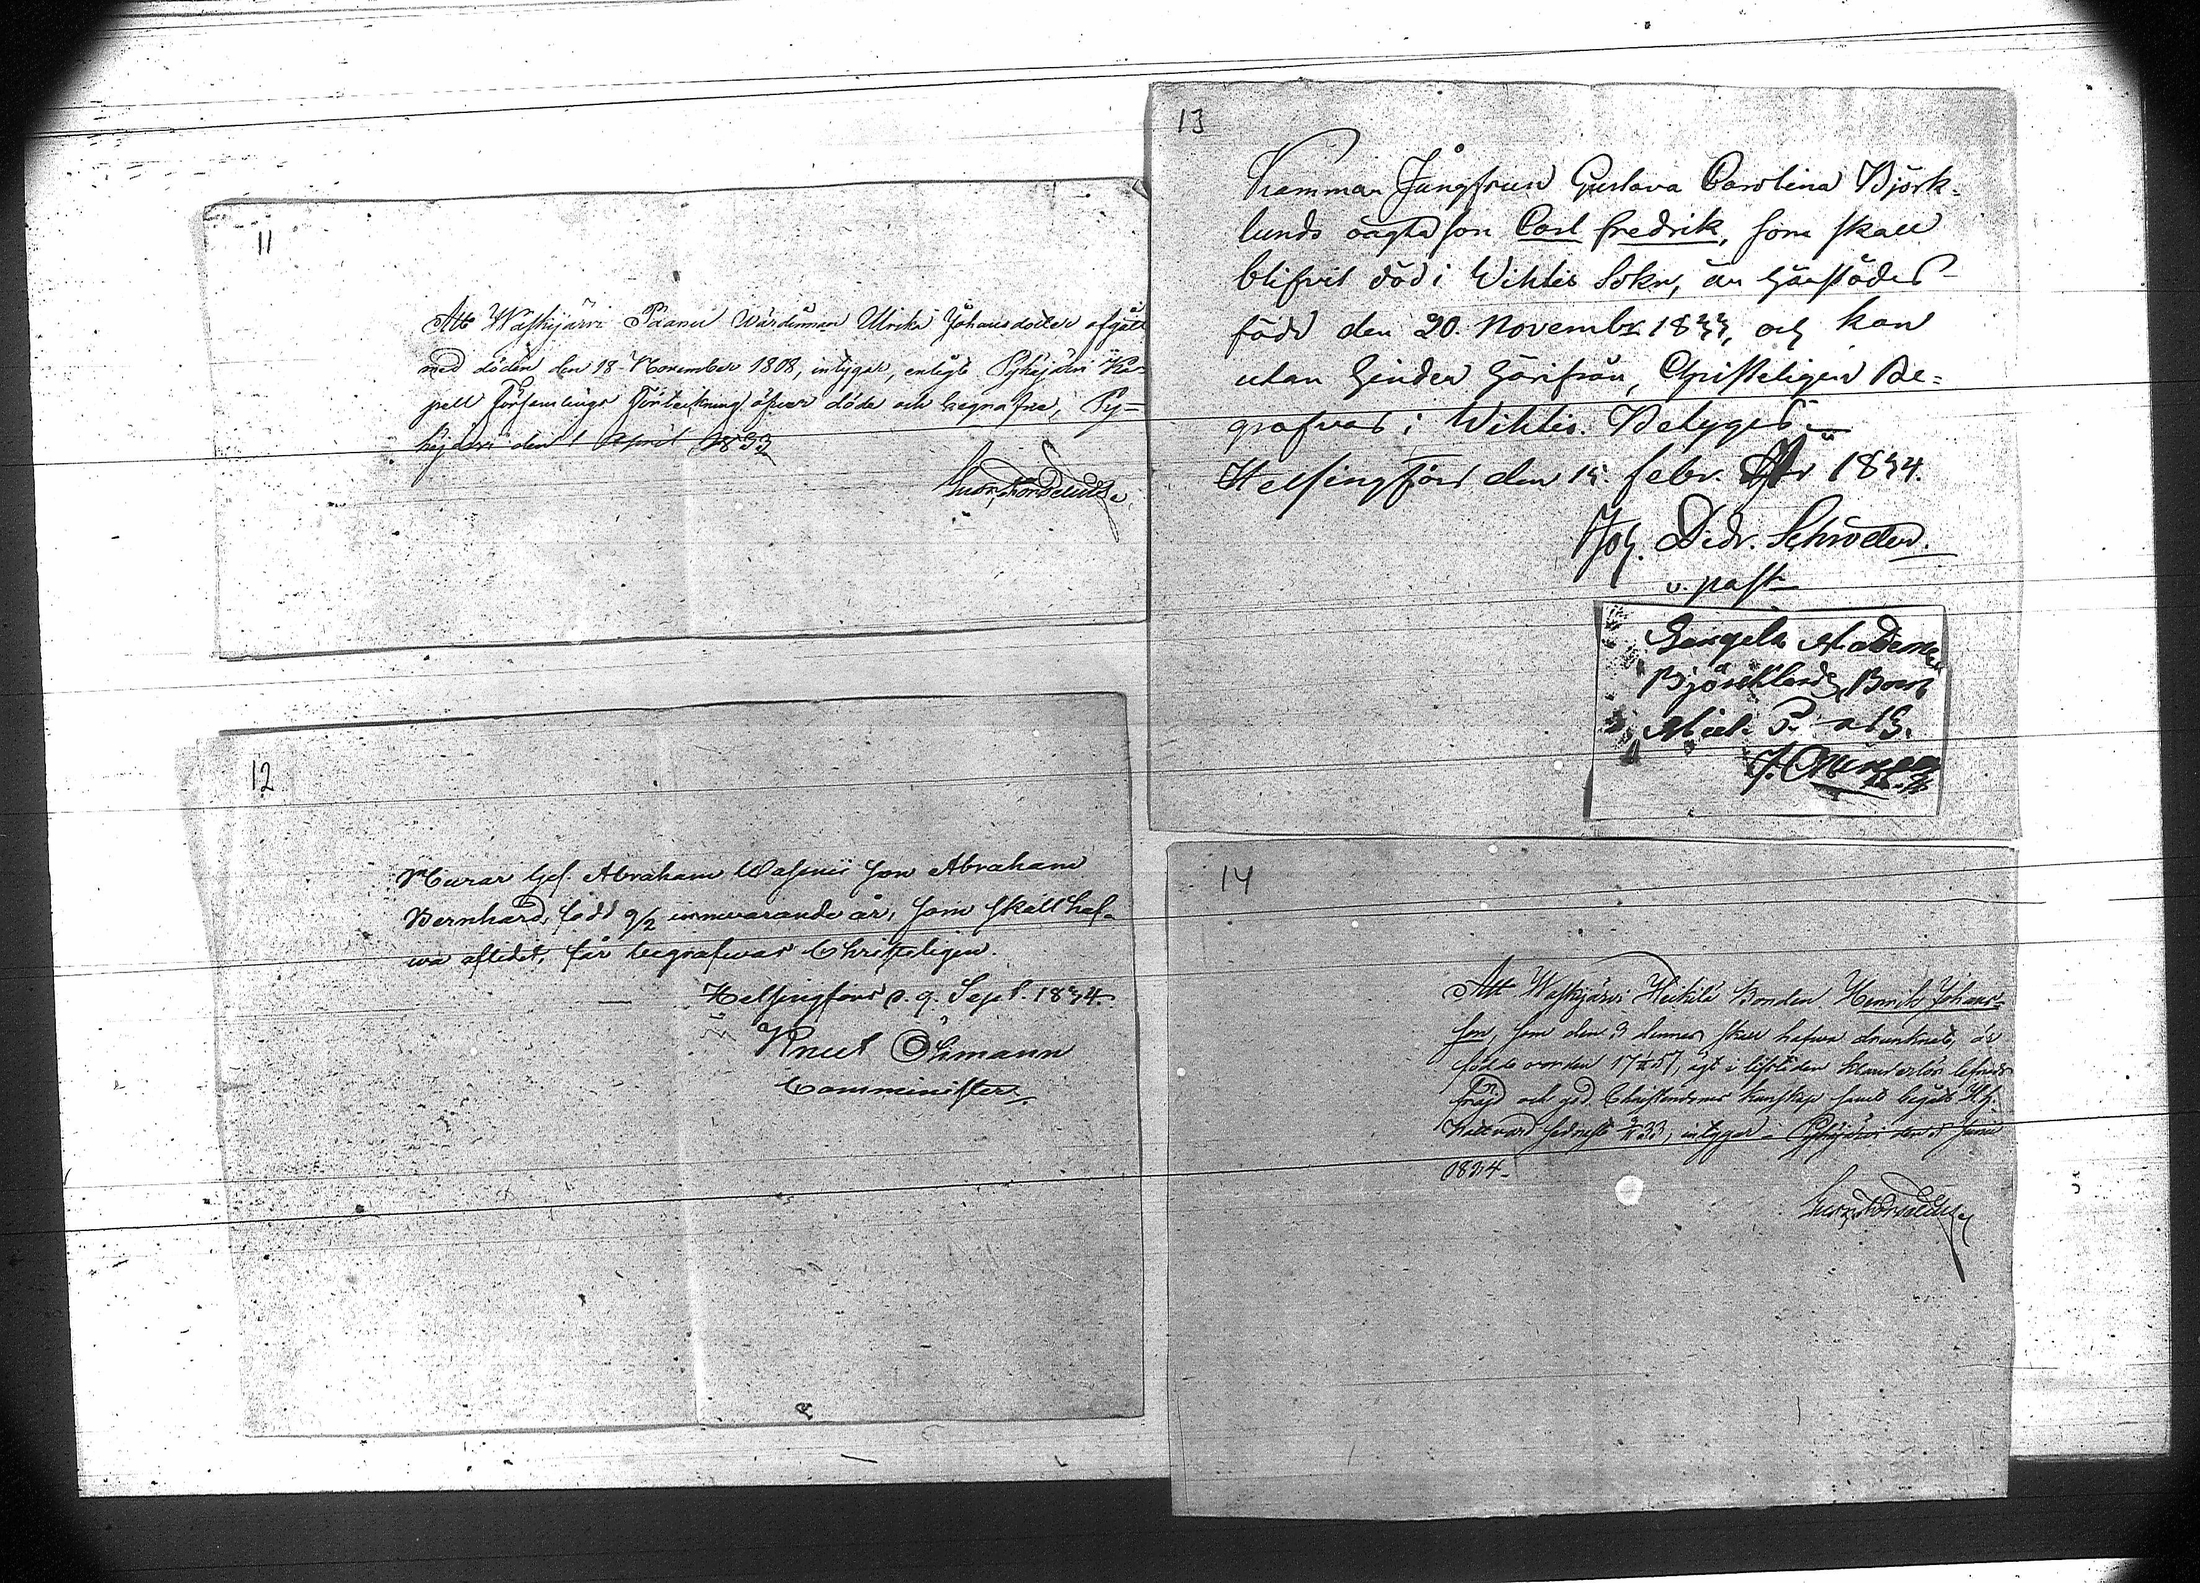 11
Att Waskijärvi Paanu Wärdinnan Ulrika Johansdotter afgått
med döden den 18 November 1808, intygar, enligt Pyhäjärvi Ka-
pell Församlings Förteckning öfver döde och begrafne, Py=
häjärvi den 1 April 1833
12
Murar Ges. Abraham Wasenii son Abraham
Bernhard, född 9/2 innevarande år, som skall haf-
wa aflidit, får begrafwas Christeligen.
Helsingfors d. 9. Sept. 1834
Knut Öhmann
Comminister
13
Kammar Jungfrun Gustava Carolina Björk-
lunds oägta son Carl Fredrik, som skall
blifvit död i Wihtis Sokn, är härstädes
född den 20. Novembr 1833, och kan
utan hinder härifrån, Christeligen Be=
grafvas i Wihtis. Betygas
Helsingfors den 15. febr. 1834.
Joh. Didr. Schröder.
v. past
Björklunds Barn
14
Att Waskijärvi Heikilä Bonden Henrik Johans-
son, som den 3 dennes skall hafva drunknat, är
född worden 17 57, ägt i lifstiden klanderlös lefnads
fräjd och god Christendoms kunskap samt begått H. H.
Nattvard sednast 33, intygar Pyhäjärvi den 5 Junii
1834